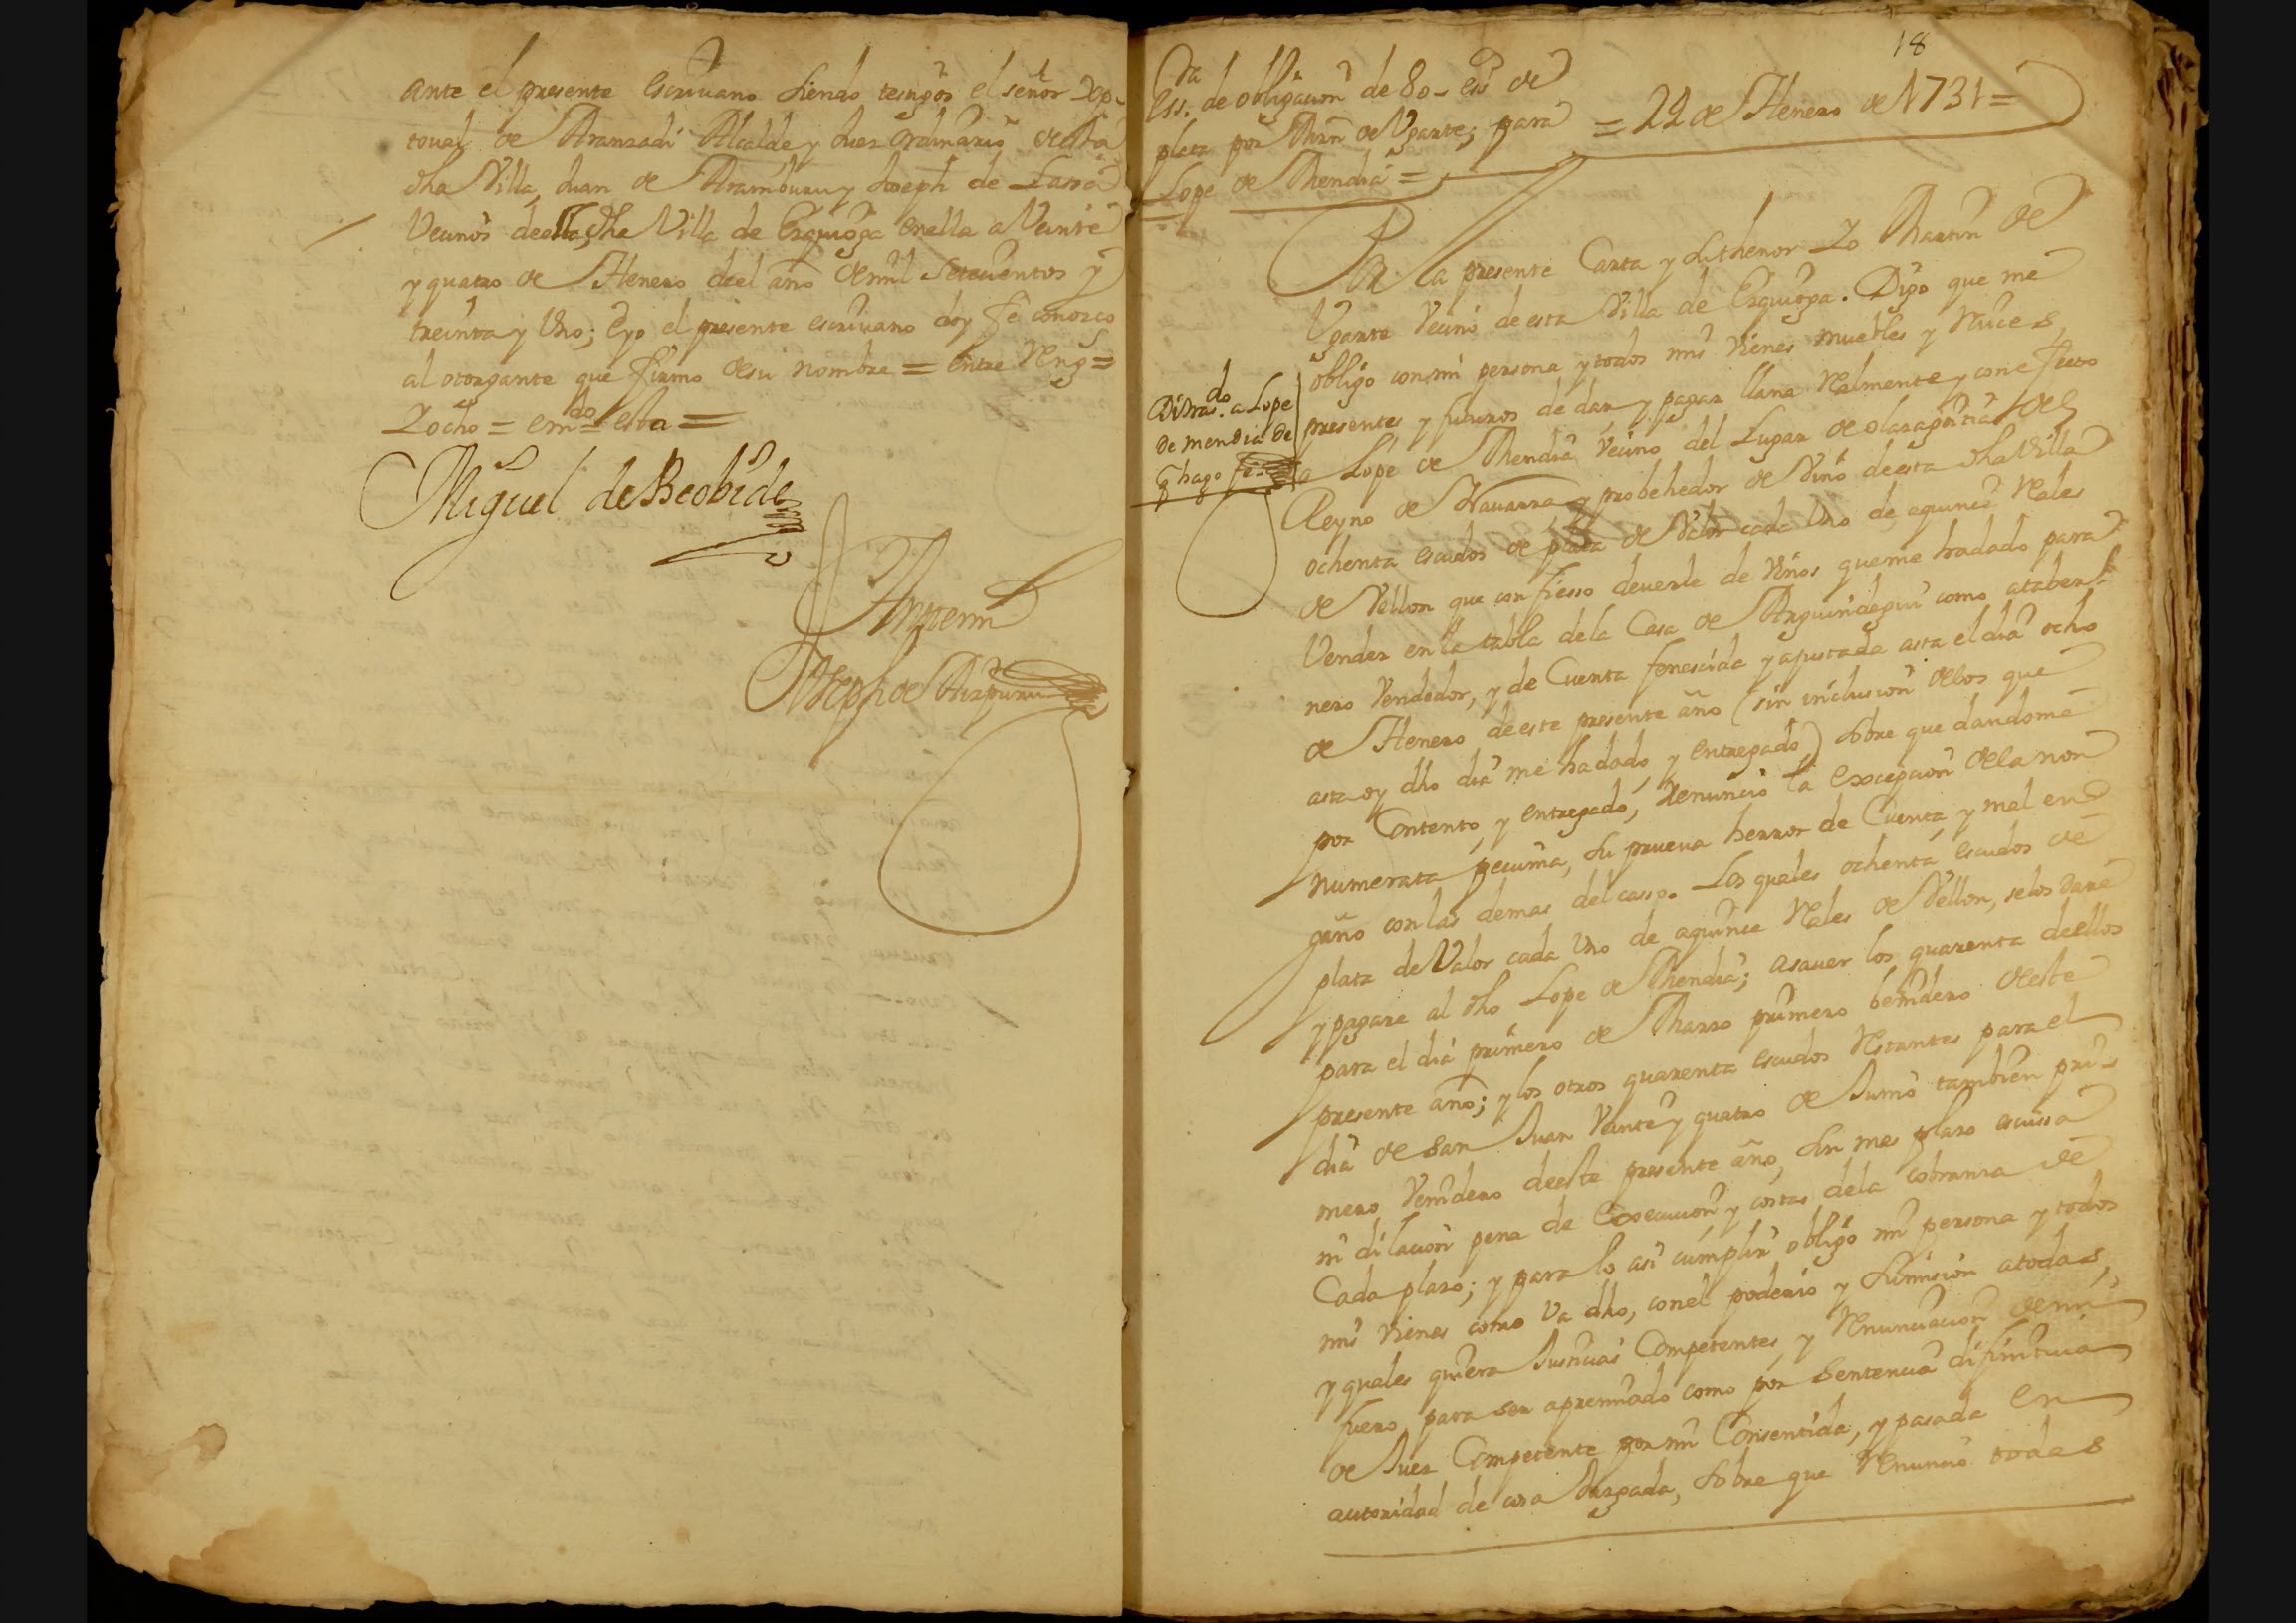 ante el presente escriuano siendo testigos el señor Xp-
toual de Aranzadi Alcalde y Juez ordinario desta
dha Villa, Juan de Aramburu y Joseph de Lassa
Vecinos deella, dha Villa de Ezquioga enella a Veinte
y quatro de Henero deel año demil Setecientos y
treinta y Uno; Eyo el presente escriuano doy fe conozco
al otorgante que firmo desu nombre = entre Reng.s =
Zocho = em.do = esta =
Miguel de Beobide
Antemi
Joseph de Aizpuru
18
Ess.ra de obligacion de 80- es.s de
plata por Mrn de Vgarte; para
Lope de Mendia =
= 22 de Henero de 1731 =
Por la presente Carta y su thenor Yo Martin de
Vgarte Vecino de esta Villa de Ezquioga. Digo que me
obligo con mi persona y todos mis Vienes muebles y Raices,
presentes y futuros de dar y pagar llana Realmente y con efecto
a Lope de Mendia Vecino del Lugar de olazagoitia del
Reyno de Nauarra, y probehedor de Vino de esta dha Villa
ochenta escudos de plata de Valor cada Uno de aquince Reales
de Vellon que confiesso deuerle de Vinos que me ha dado para
Vender en la tabla dela Casa de Arguindegui como a taber-
nero Vendedor, y de Cuenta fenescida y ajustada asta el dia ocho
de Henero deeste presente año (sin inclusion delos que
asta oy dho dia me ha dado, y entregado) sobre que dandome
por Contento, y entregado, Renuncio la excepcion dela non
numerata pecunia, su prueua herror de Cuenta, y mal en
gaño con las demas del casso. Los quales ochenta escudos de
plata de Valor cada Uno de aquince Reales de Vellon, selos dare
y pagare al dho Lope de Mendia; asauer los quarenta deellos
para el dia primero de Marzo primero benidero deeste
presente año; y los otros quarenta escudos Restantes para el
dia de San Juan Veinte y quatro de Junio tambien pri-
mero Venidero deeste presente año, sin mas plazo escussa
ni dilacion pena de Execucion y costas dela cobranza de
Cada plazo; y para lo asi cumplir obligo mi persona y todos
mis Vienes como Va dho, con el poderio y sumision a todas,
y quales quiera Justicias Competentes, y Renunciacion de mi
fuero, para ser apremiado como por Sentencia difinitiua
de Juez Competente por mi Consentida, y pasada en
autoridad de cosa Juzgada, sobre que Renuncio todas
Di tras.do a Lope
de mendia de
q hago fe =